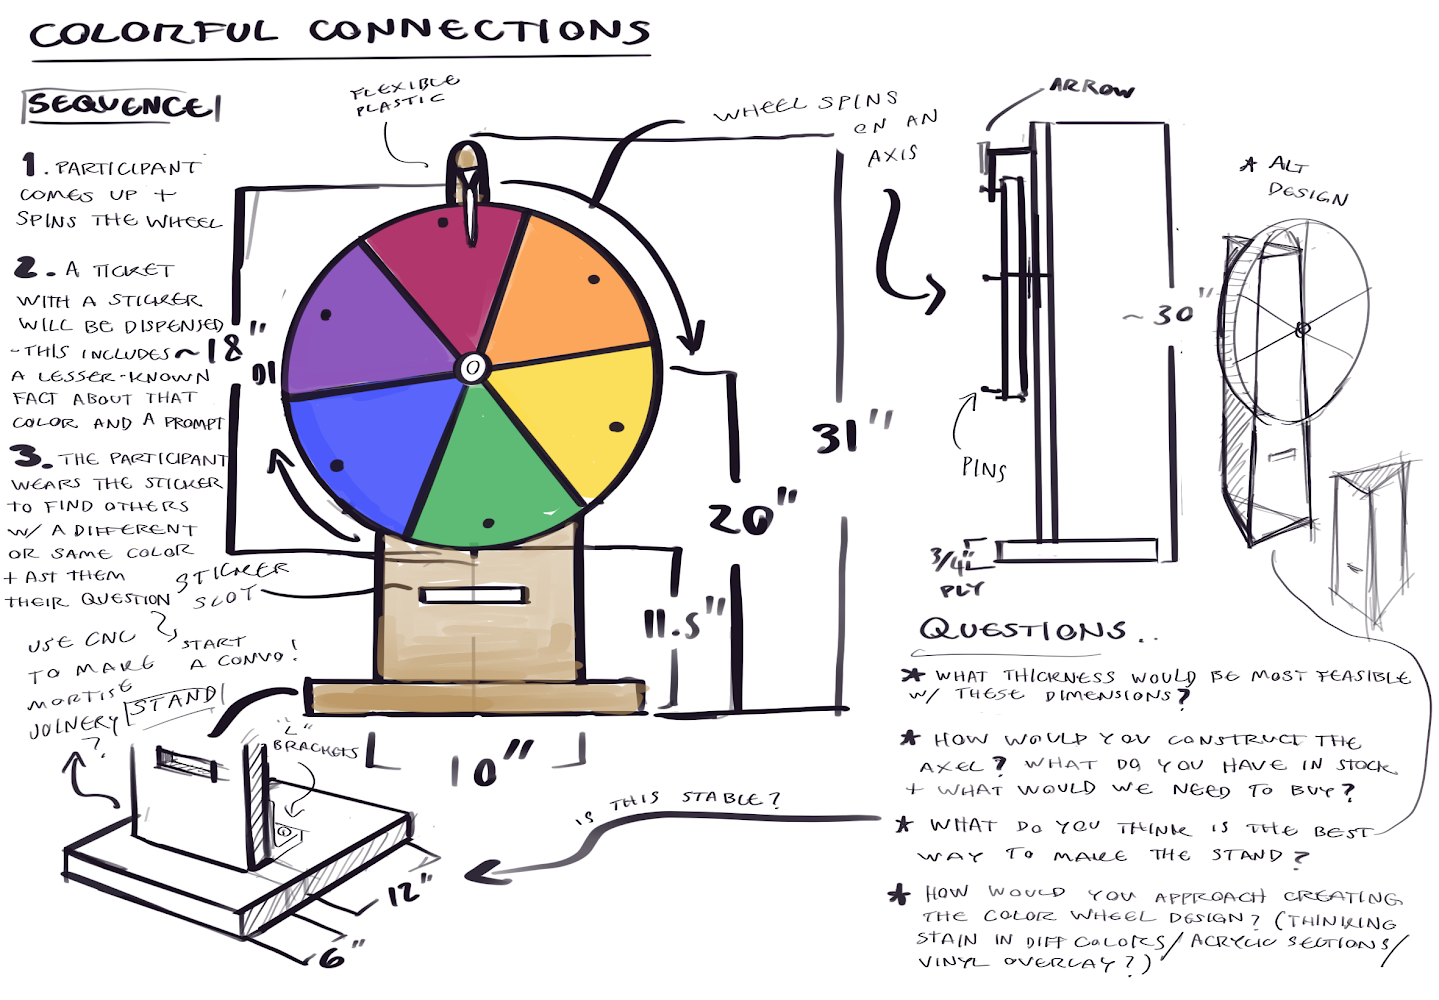 COLORFUL CONNECTIONS
SEQUENCE
1. PARTICIPANT
COMES UP +
SPINS THE WHEEL
2. A TICKET
WITH A STICKER
WILL BE DISPENSED
- THIS INCLUDES
A LESSER-KNOWN
FACT ABOUT THAT
COLOR AND A PROMPT
3. THE PARTICIPANT
WEARS THE STICKER
TO FIND OTHERS
W/ A DIFFERENT
OR SAME COLOR
+ AST THEM
THEIR QUESTION
START
A CONVO!
FLEXIBLE
PLASTIC
WHEEL SPINS
ON AN
AXIS
~18"
DI
31"
20"
11.5"
10"
STICKER
SLOT
USE CNC
TO MAKE
MORTISE
JOINERY
?
STAND
"L"
BRACKETS
12"
6"
IS THIS STABLE?
ARROW
~30"
PINS
3/4"
PLY
* ALT
DESIGN
QUESTIONS..
* WHAT THICKNESS WOULD BE MOST FEASIBLE
W/ THESE DIMENSIONS?
* HOW WOULD YOU CONSTRUCT THE
AXEL? WHAT DO YOU HAVE IN STOCK
+ WHAT WOULD WE NEED TO BUY?
* WHAT DO YOU THINK IS THE BEST
WAY TO MAKE THE STAND?
* HOW WOULD YOU APPROACH CREATING
THE COLOR WHEEL DESIGN? (THINKING
STAIN IN DIFF COLORS/ACRYLIC SECTIONS/
VINYL OVERLAY?)